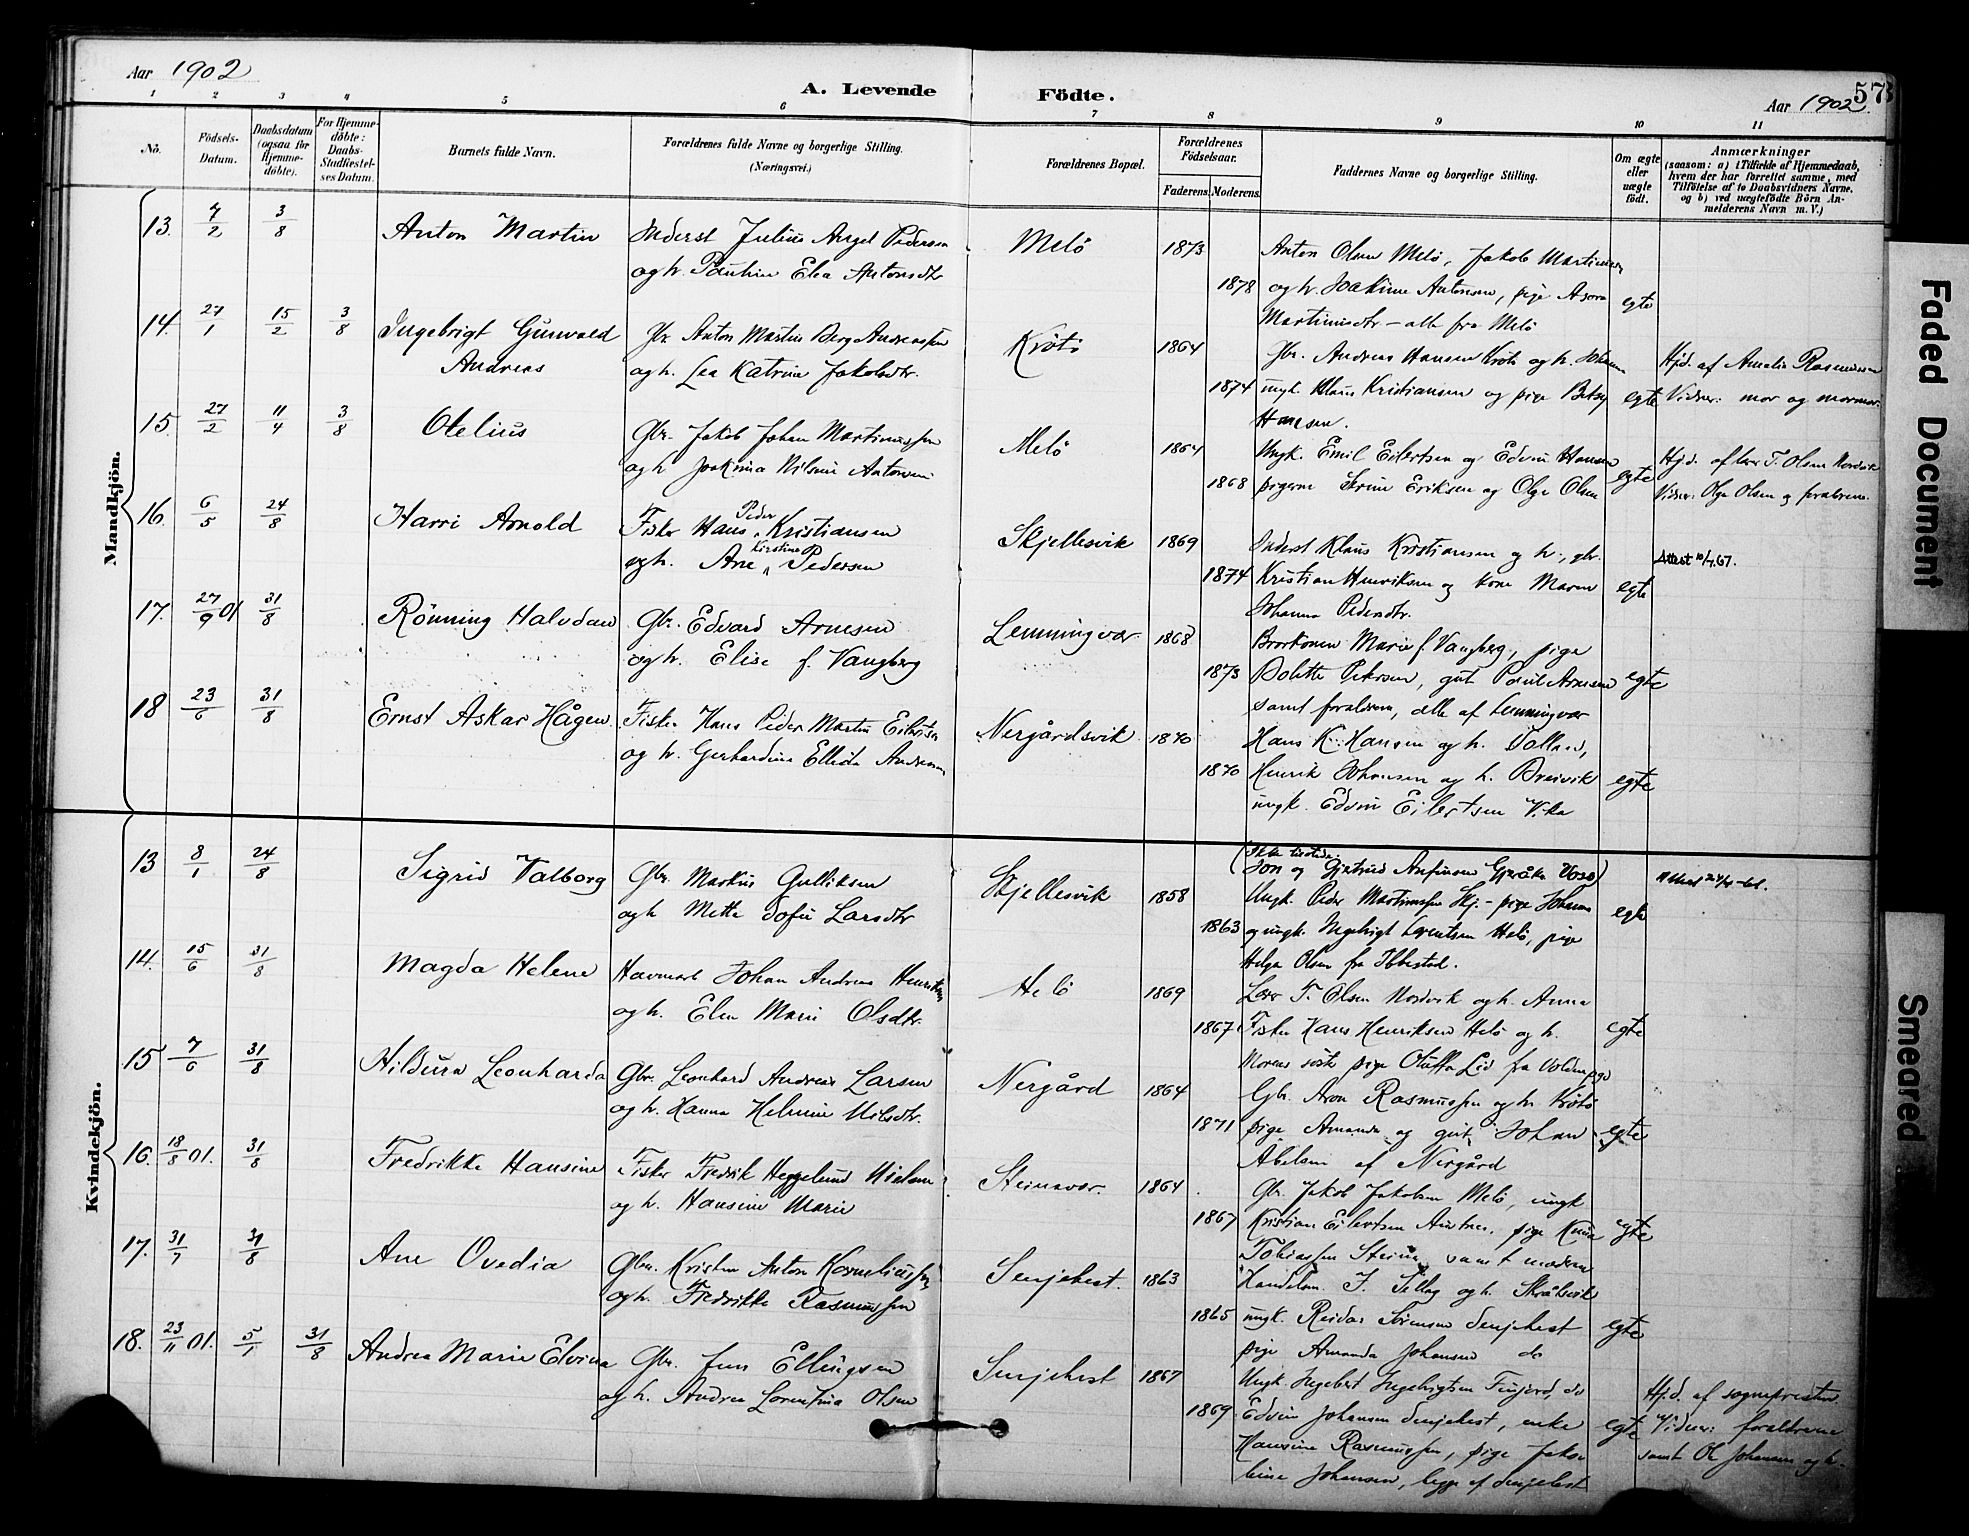 Aar 1902
A. Levende Födte.
Aar 1902
573
1 2 3 4 5 6 7 8 9 10 11
Nò.
Födsels-Datum.
Daabsdatum (ogsaa for Hjemme-döbte).
For Hjemme-döbte: Daabs-Stadfæstel-ses Datum.
Barnets fulde Navn.
Forældrenes fulde Navne og borgerlige Stilling. (Næringsvei.)
Forældrenes Bopæl.
Forældrenes Födselsaar.
Faderens. Moderens.
Faddernes Navne og borgerlige Stilling.
Om ægte eller uægte födt.
Anmærkninger
(saasom: a) i Tilfælde af Hjemmedaab,
hvem der har forrettet samme, med
Tilföielse af to Daabsvidners Navne.
og b) ved uægtefödte Börn An-
melderens Navn m. V.)
Mandkjön.
13. 7/2 3/8 Anton Martin
Inderst Julius Angel Pedersen
og h. Pauline Elea Antonsdtr
Melö 1873 1878
Anton Olsen Melö, Jakob Martinsen
og h. Joakime Antonsen, pige
Martinsdtr - alle fra Melö
egte
14. 27/1 15/2 3/8 Ingebrigt Gunvald
Andreas
Gbr Anton Martin Berg Andreassen
og h. Lea Katrine Jakobsdtr.
Krötö 1864 1874
Gbr. Andreas Hansen Krötö og h. Johanna
ungk. Klaus Kristiansen og pige Betsy
Hansen.
egte
Hjd. af Amalie Rasmussen
Vidner: mor og mormor.
15. 27/2 11/4 3/8 Otelius
Gbr. Jakob Johan Martinussen
og h Joakima Nilsine Antonsen
Melö 1864 1868
Ungk. Emil Eilertsen og Edvin Hansen
pigerne Serine Eriksen og Olga Olsen
egte
Hjd. af lærer T. Olsen Nordvik
Vidner: Olga Olsen og forældrene.
16. 6/5 24/8 Harri Arnold
Fisker Hans Peder Kristiansen
og h. Ane Kirstine Pedersen
Skjellesvik 1869 1874
Inderst Klaus Kristiansen og h., gbr.
Kristian Henriksen og kone Maren
Johanna Pedersdtr.
egte
Attest 10/7.67.
17. 27/9 01 31/8 Rönning Halvdan
Gbr. Edvard Arnesen
og h. Elise f. Vangberg
Lemmingvær 1868 1873
Brorkonen Marie f. Vangberg, pige
Bolette Pedersen, gut Paul Arnesen
samt forældrene, alle af Lemmingvær
egte
18 23/6 31/8 Ernst Askar Hågen
Fisker Hans Peder Martin Eilertsen
og h. Gerhardine Ellida Andersen
Nergårdsvik 1870 1870
Hans K. Hansen og h. Volland,
Henrik Johansen og h. Breivik
ungk. Edvin Eilertsen Vika
egte
Kvindekjön.
13 8/1 24/8 Sigrid Valborg
Gbr Markus Gulliksen
og h Mette Sofie Larsdtr
Skjellesvik 1858 1863
Jon og Gjertrud Anfinsen Gjeråker Voss)
Ungk. Peder Martinssen Skj. - pige Johanna
og ungk. Ingebrigt Lorentsen Helö, pige
Helga Olsen fra Ibbestad.
egte
14. 15/6 31/8 Magda Helene
Havmand Johan Andreas Henriksen
og h. Elen Marie Olsdtr.
Helö 1869 1867
Lærer T. Olsen Nordvik og h. Anna
Fisker Hans Henriksen Helö og h.
Morens søster pige Lid fra Volden
egte
15 7/6 31/8 Hildura Leonharda
Gbr. Leonhard Andreas Larsen
og h. Hanna Helmine Nilsdtr.
Nergård 1864 1871
Gbr. Aron Rasmussen og h. Krötö
pige Amanda og gut Johan
Abelsen af Nergård
egte
16. 18/8 01. 31/8 Fredrikke Hansine
Fisker Fredrik Heggelund Nielsen
og h. Hansine Marie
Steinavær. 1864 1867
Gbr. Jakob Jakobsen Melö, ungk
Kristian Eilertsen, pige
Tobiassen Steinavær samt moderen
egte
17. 31/7 31/8 Ane Ovedia
Gbr. Kristen Anton Korneliussen
og h. Fredrikke Rasmussen
Senjehest. 1863 1865
Handelsm. J. og h. Skrålsvik
ungk. Reidar Sörensen Senjehest
pige Amanda Johansen do
egte
18. 23/11 01. 5/1 31/8 Andrea Marie Elvina
Gbr. Jens Ellingsen
og h. Andrea Lorentina Olsen
Senjehest 1867 1869
Ungk. Ingebrigtsen Finjord, do
Edvin Johansen Senjehest, enke
Hansine Rasmussen, pige Jako-
bine Johansen, begge af Senjehest
egte
Hjd. af sognepresten
Vidner: forældrene
samt Ole Johansen og h.
Faded Document
Smeared